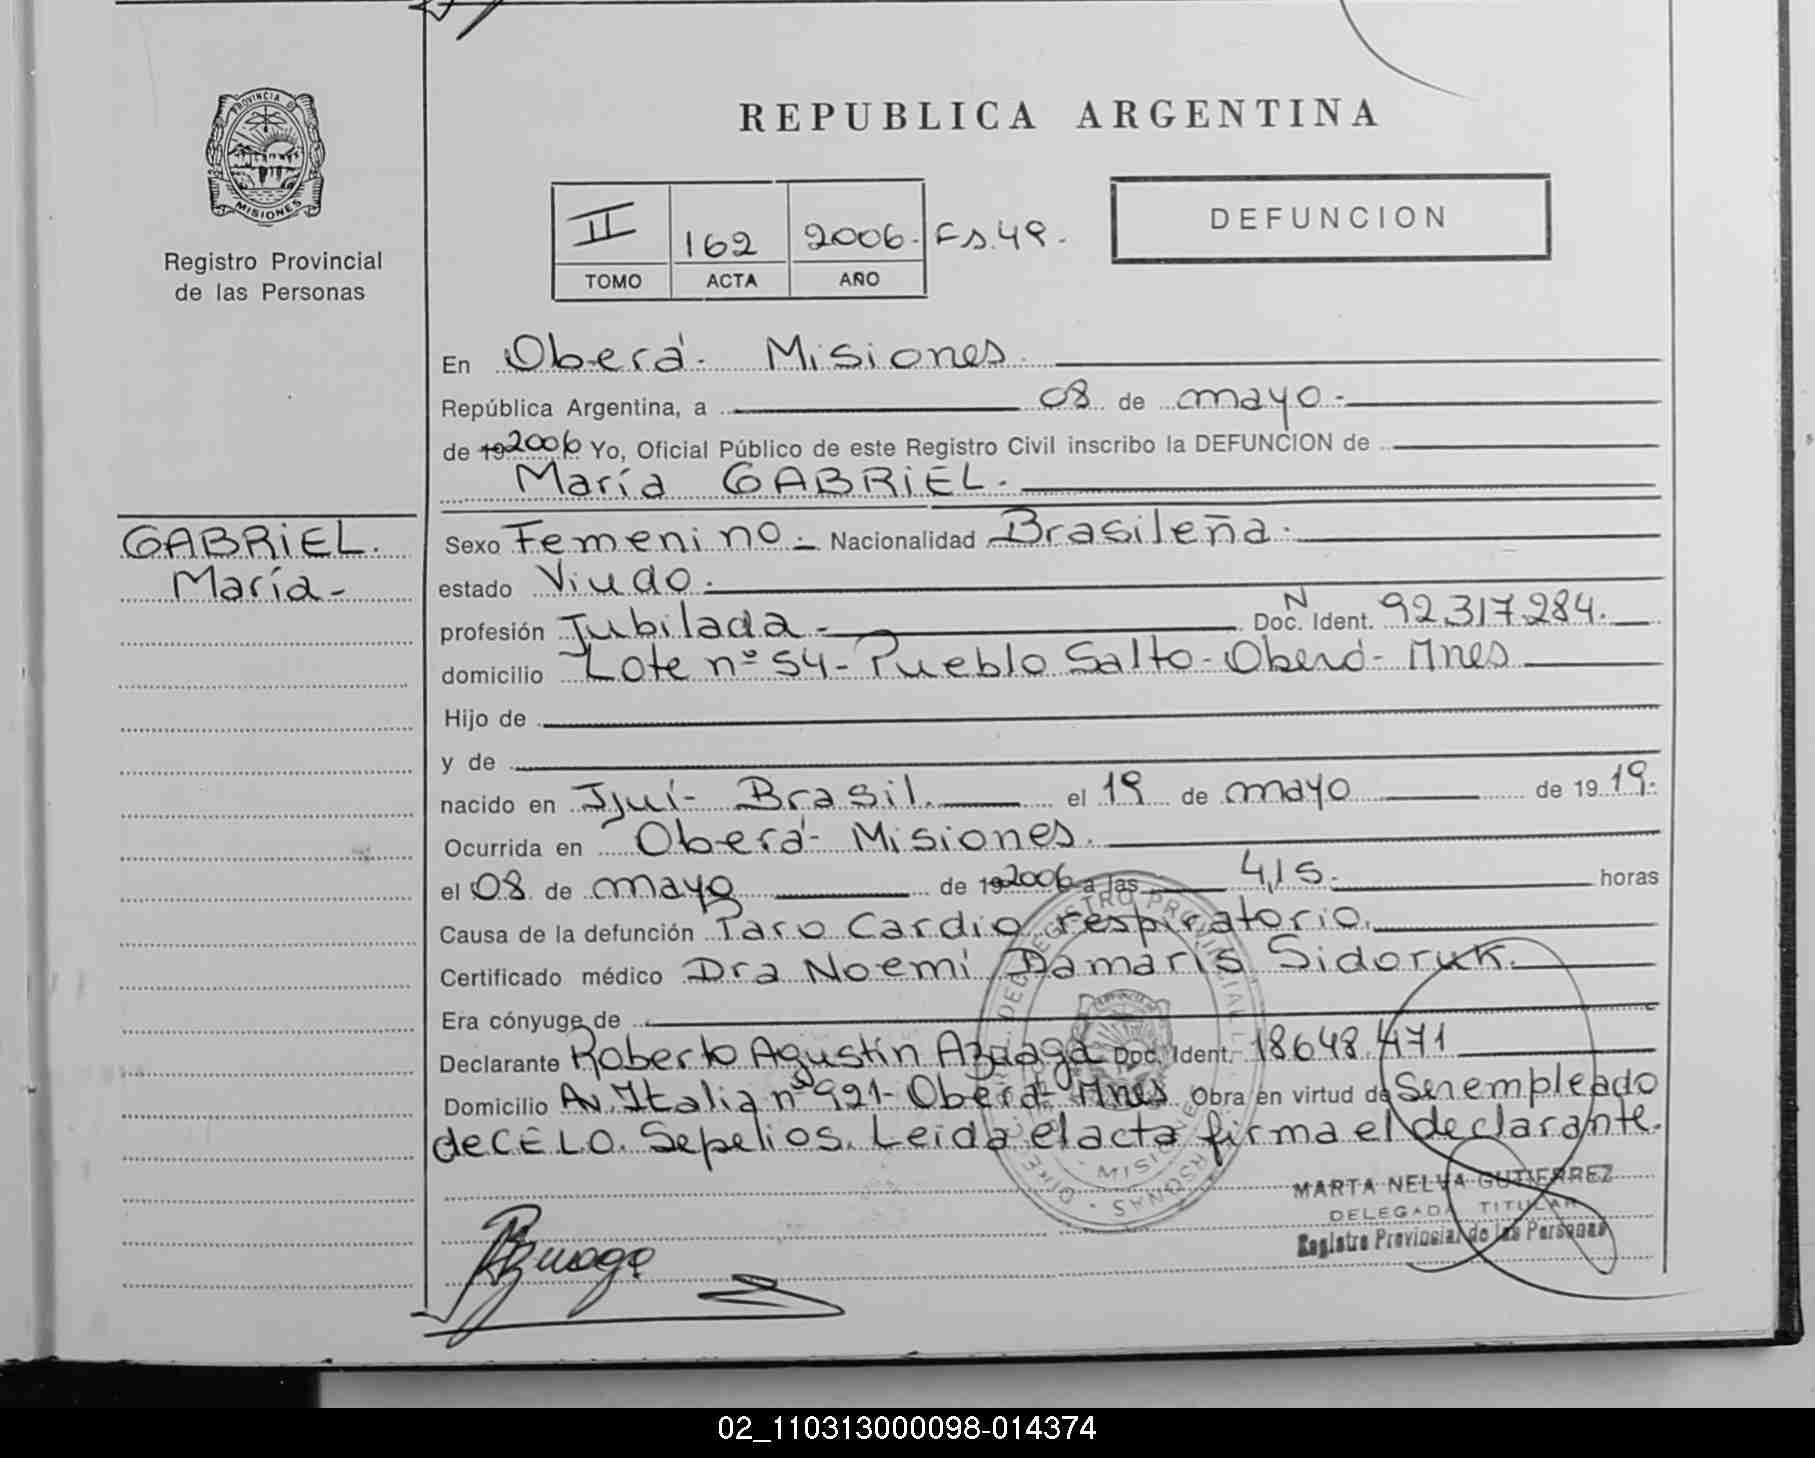 REPUBLICA ARGENTINA
PROVINCIA DE
MISIONES
Registro Provincial
de las Personas
II 162 2006.- Fs.49.-
TOMO ACTA AÑO
DEFUNCION
En Oberá- Misiones.
República Argentina, a 08 de mayo.-
de 19 2006 Yo, Oficial Público de este Registro Civil inscribo la DEFUNCION de
María GABRiEL.
GABRiEL.
María-
Sexo Femenino.- Nacionalidad Brasileña.
estado Viudo.
profesión Jubilada- Doc. N Ident. 92.317.284.
domicilio Lote nº 54- Pueblo Salto- Oberá- Mnes
Hijo de
y de
nacido en Ijuí- Brasil. el 19 de mayo de 19 19.
Ocurrida en Oberá- Misiones.
el 08 de mayo de 19 2006 a las 4,15. horas
Causa de la defunción Paro Cardio respiratorio.
Certificado médico Dra Noemi Damaris Sidoruk.
Era cónyuge de
Declarante Roberto Agustín Azuaga Doc. Ident. 18648.471
Domicilio Av. Italia nº 921- Oberá- Mnes Obra en virtud de Ser empleado
de CELO. Sepelios. Leida el acta firma el declarante.
MARTA NELVA GUTIERREZ
DELEGADA TITULAR
Registro Provincial de las Personas
Azuaga
02_110313000098-014374